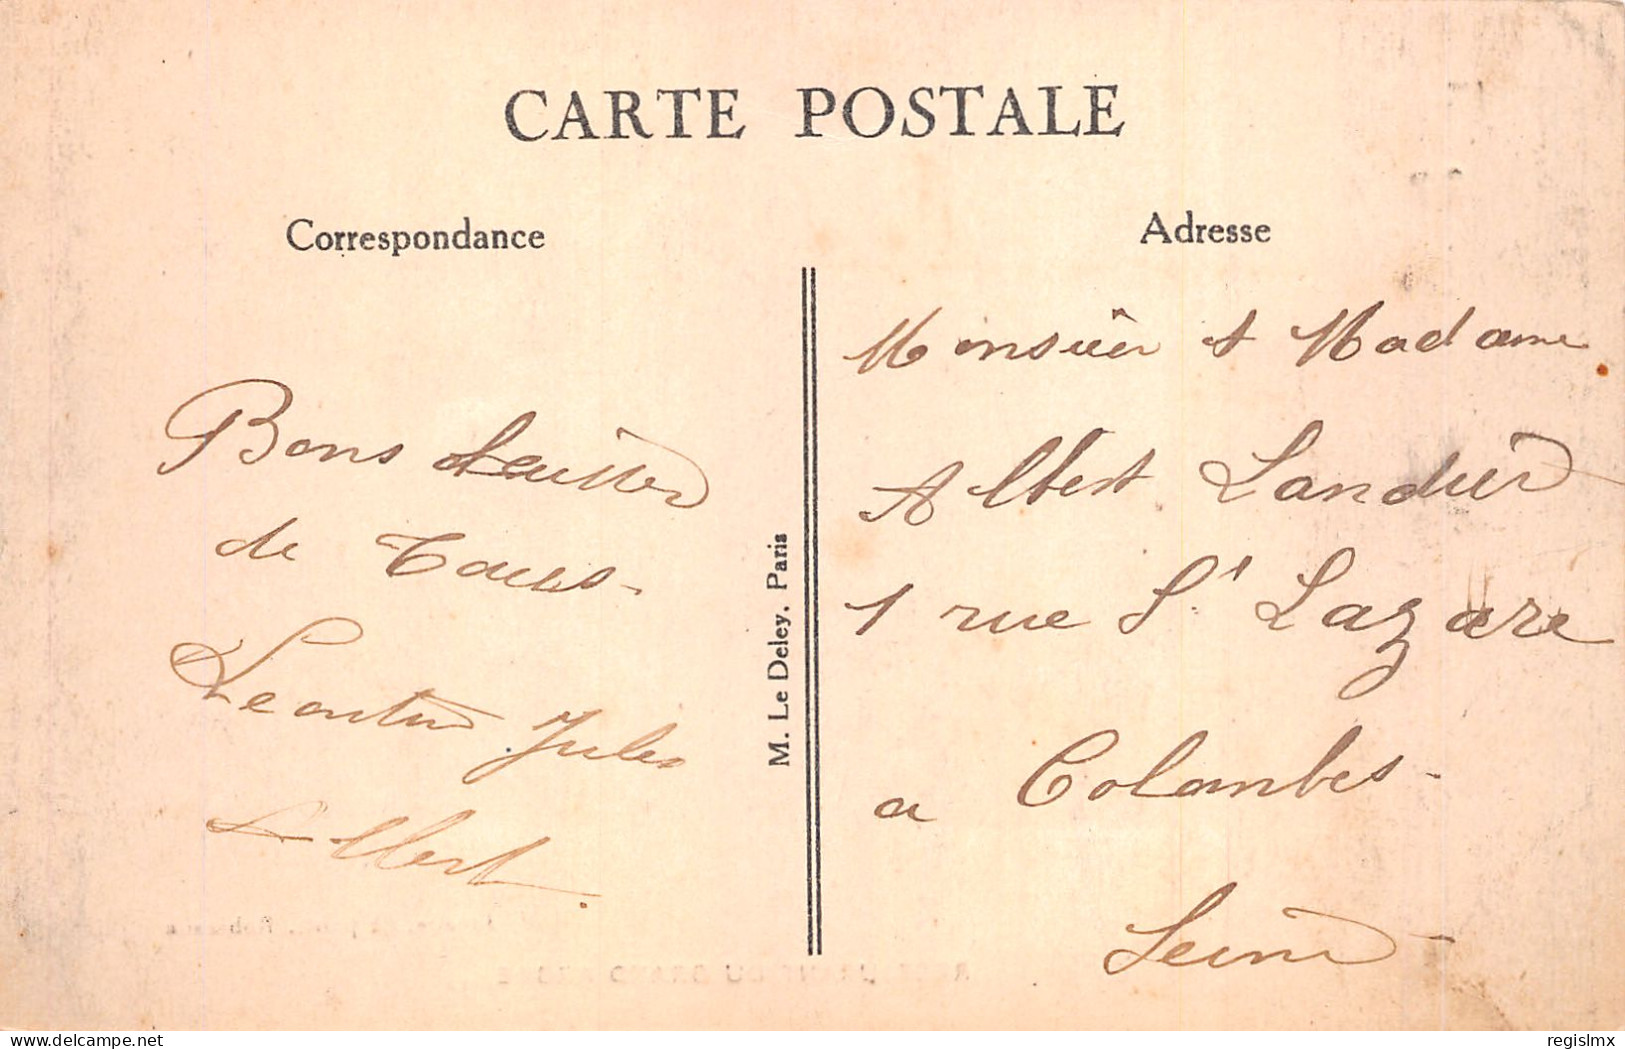 CARTE POSTALE
Correspondance
Bons baisers
de tous-
Leontine Jules
Albert.
M. Le Deley. Paris
Adresse
Monsieur & Madame
Albert Landier
1 rue St Lazare
a Colombes-
Seine-
delcampe.net
regislmx